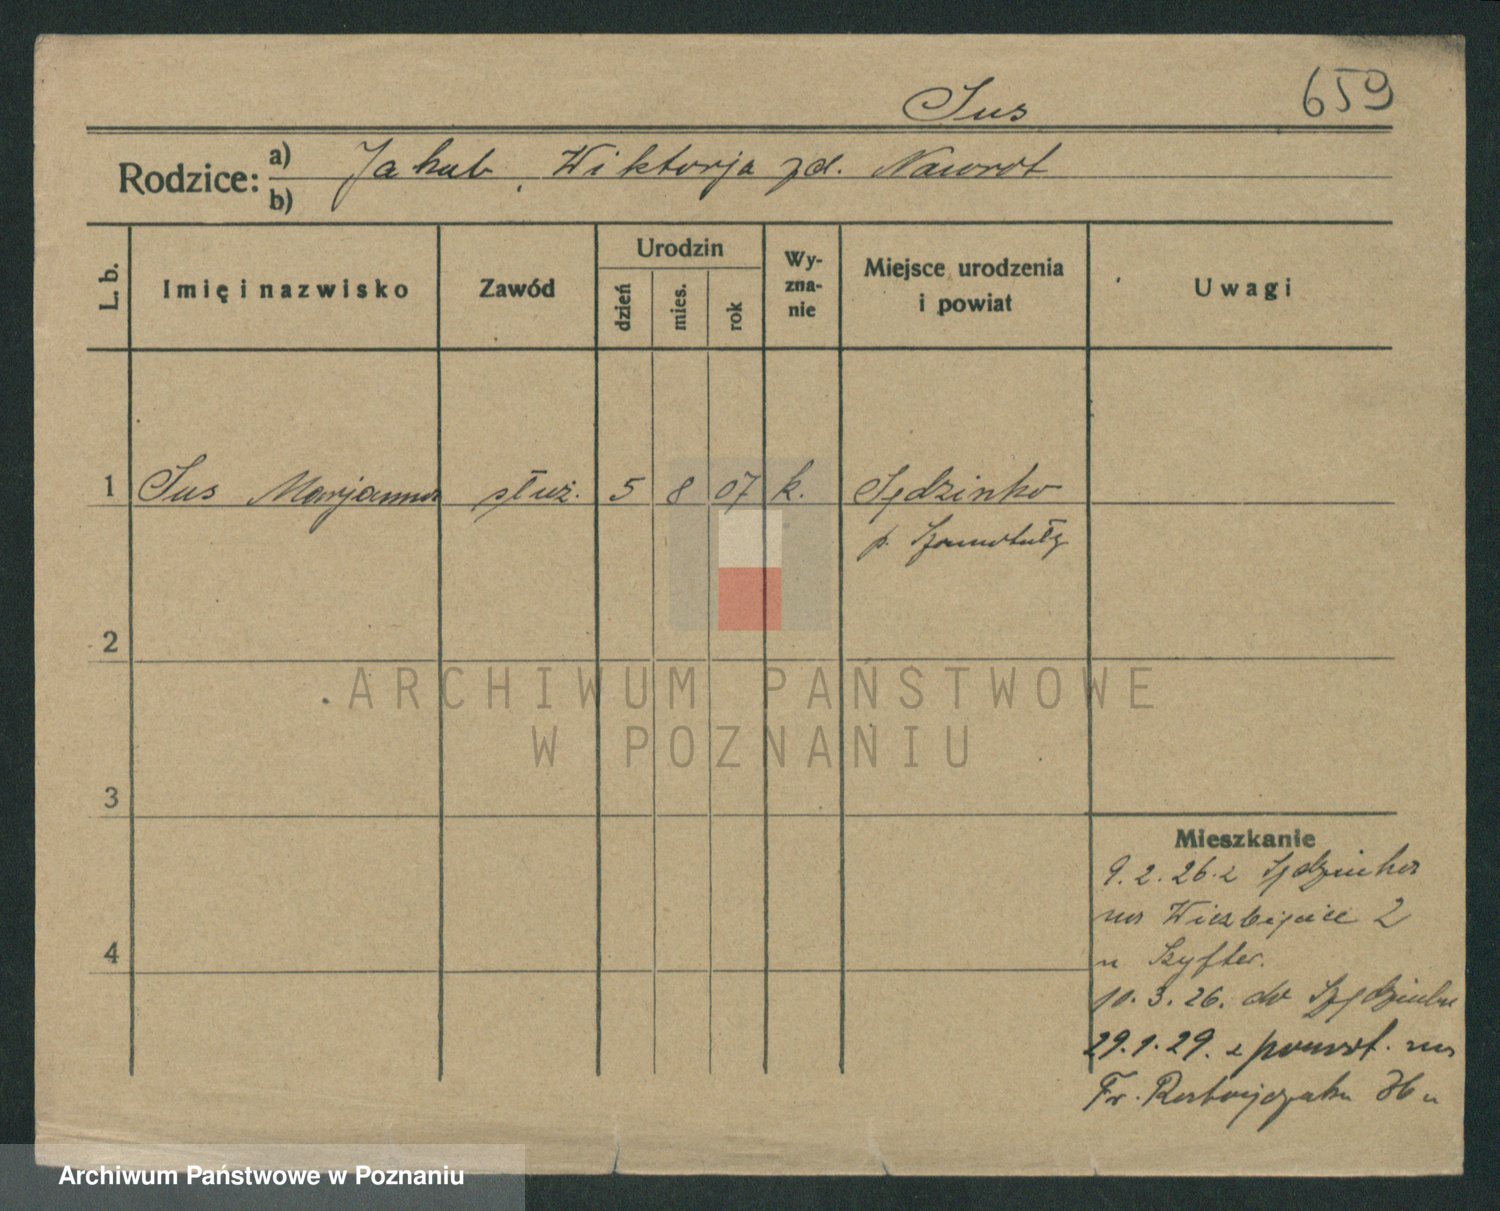 Jus
659
Rodzice: a) b) Jakub, Wiktorja zd. Nawrot
L. b.
Imię i nazwisko
Zawód
Urodzin
dzień
mies.
rok
Wy-
zna-
nie
Miejsce urodzenia
i powiat
Uwagi
1 Jus Marjanna służ. 5 8 07 k. Sędzinko
p. Szamotuły
2
ARCHIWUM PAŃSTWOWE
W POZNANIU
3
Mieszkanie
9.2.26. z Sędzinka
na 2
4
u Szyfter.
10.3.26. do
29.1.29. z powrot. na
Fr. Ratajczaka u
Archiwum Państwowe w Poznaniu